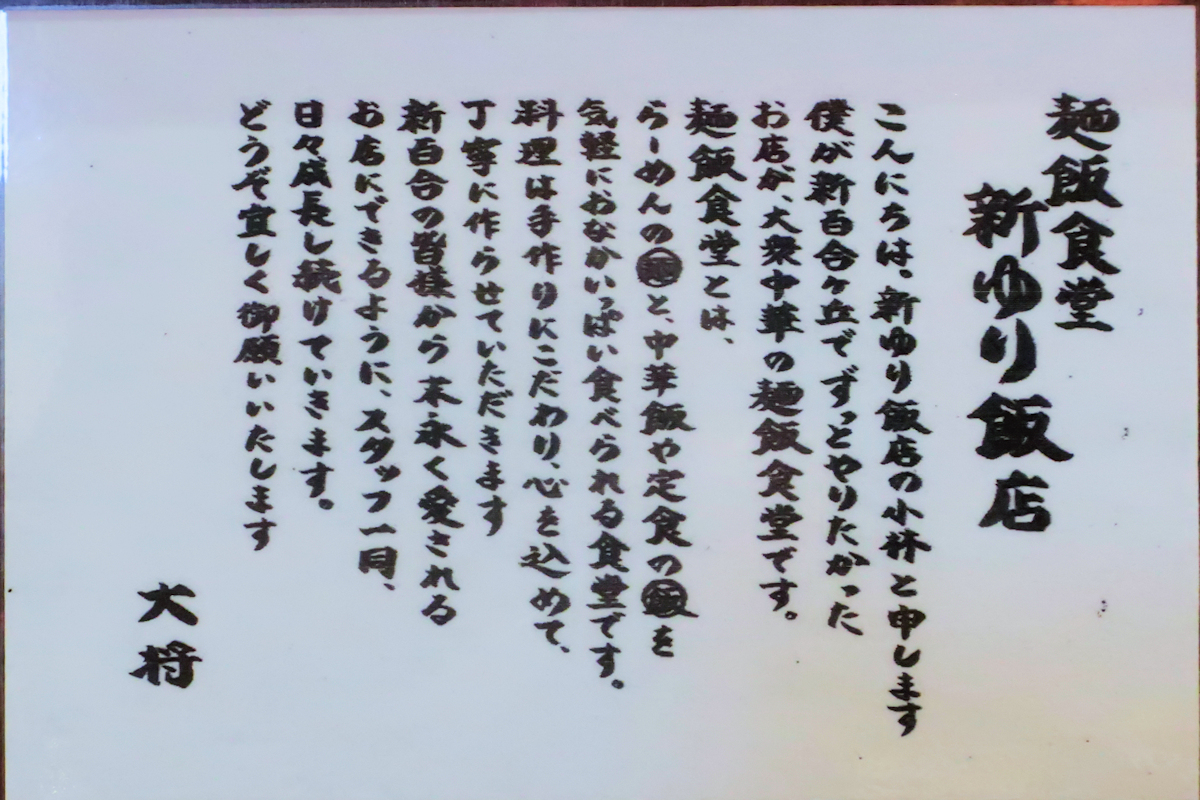 麺飯食堂
新ゆり飯店
こんにちは。新ゆり飯店の小林と申します
僕が新百合ヶ丘でずっとやりたかった
お店が、大衆中華の麺飯食堂です。
麺飯食堂とは、
らーめんの㊀麺と、中華飯や定食の飯を
気軽におなかいっぱい食べられる食堂です。
料理は手作りにこだわり、心を込めて、
丁寧に作らせていただきます
新百合の皆様から末永く愛される
お店にできるように、スタッフ一同、
日々成長し続けていきます。
どうぞ宜しく御願いいたします
大将